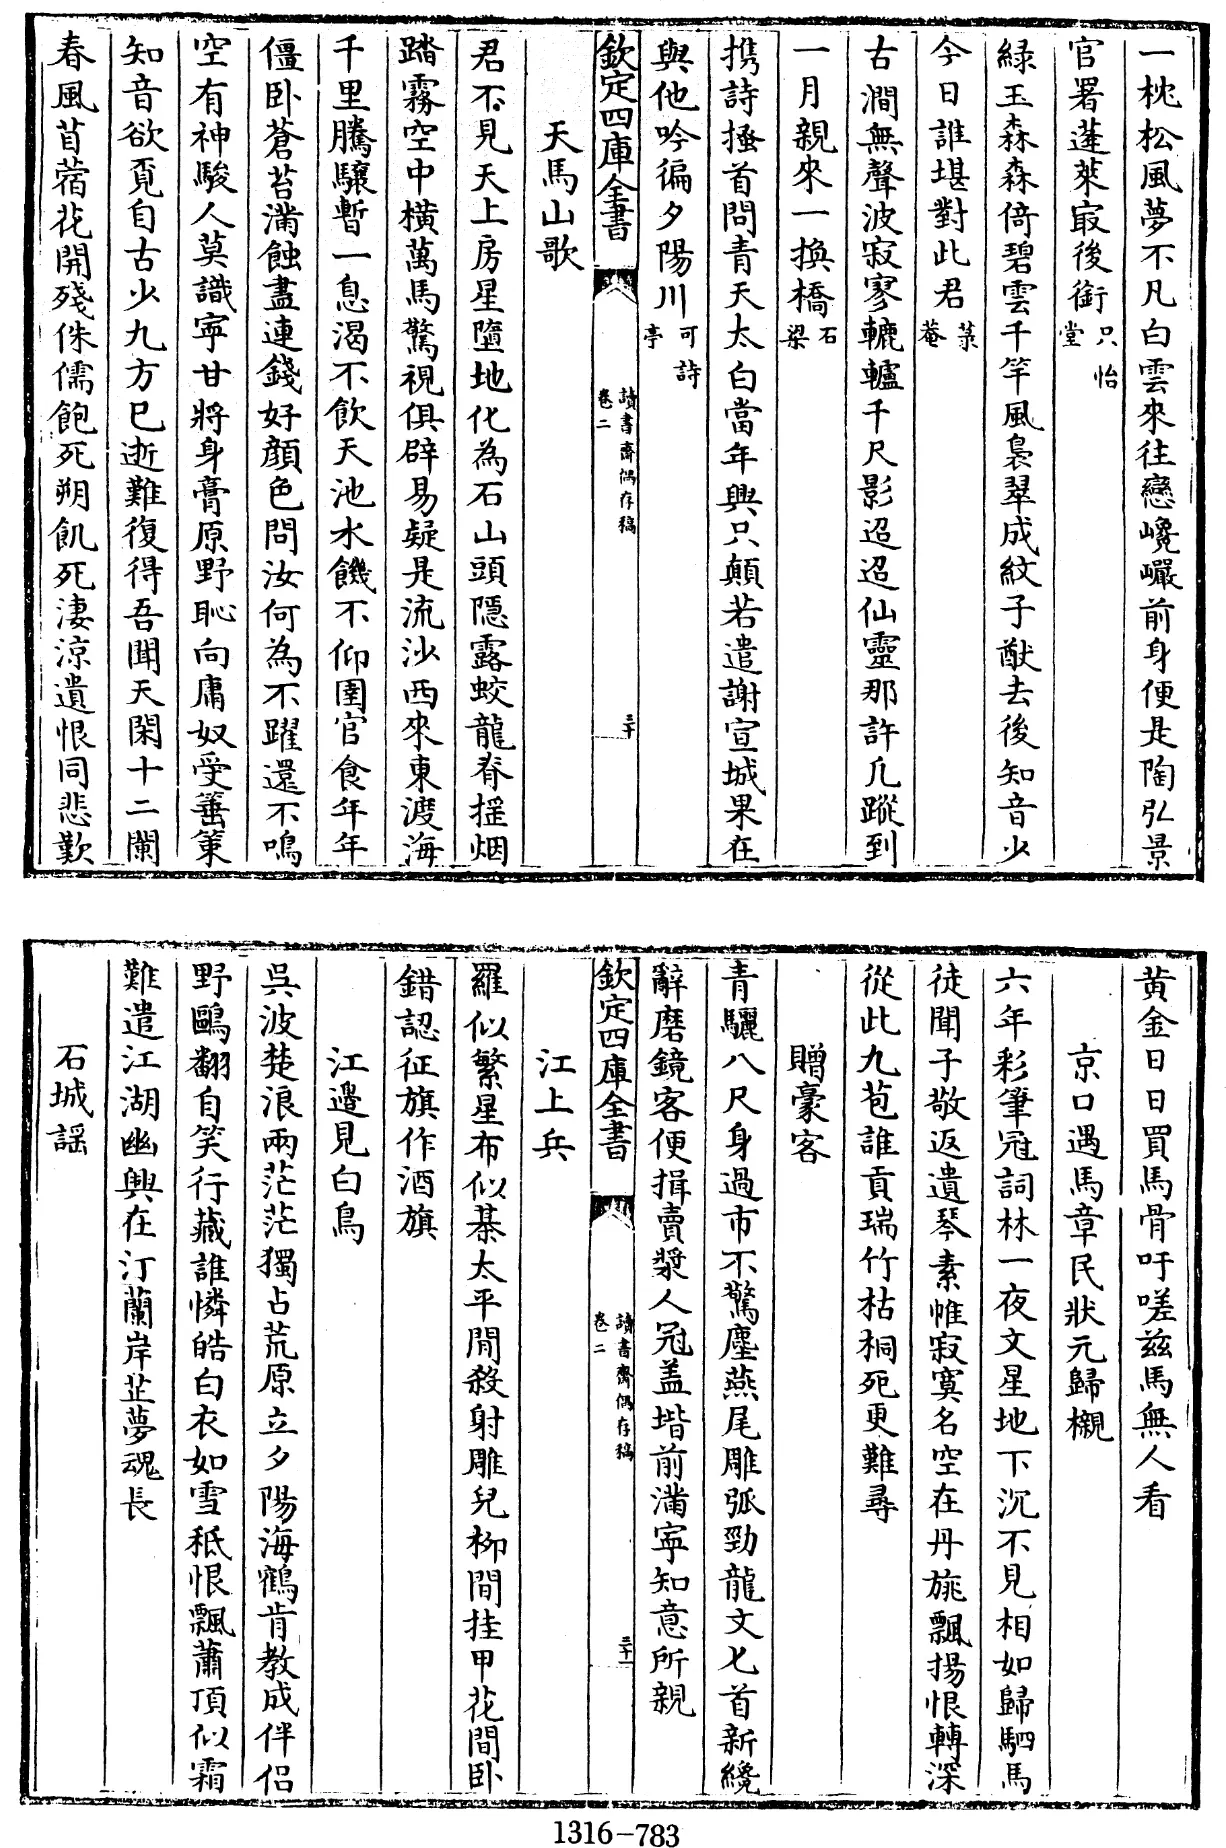 一枕松風夢不凡白雲來往戀巉巖前身便是陶弘景
官署蓬萊㝡後銜只怡堂
緑玉森森倚碧雲千竿風裊翠成紋子猷去後知音少
今日誰堪對此君菉菴
古澗無聲波寂寥轆轤千尺影迢迢仙靈那許凡蹤到
一月親來一換橋石梁
携詩搔首問青天太白當年興只顛若遣謝宣城果在
與他吟徧夕陽川可詩亭
欽定四庫全書
讀書齋偶存稿
卷二
三十
天馬山歌
君不見天上房星墮地化為石山頭隱露蛟龍脊揺烟
踏霧空中橫萬馬驚視俱辟易疑是流沙西來東渡海
千里騰驤暫一息渴不飲天池水饑不仰圉官食年年
僵卧蒼苔滿蝕盡連錢好顔色問汝何為不躍還不鳴
空有神駿人莫識寧甘將身膏原野恥向庸奴受箠策
知音欲覓自古少九方已逝難復得吾聞天閑十二闌
春風苜蓿花開殘侏儒飽死朔飢死淒涼遺恨同悲歎
黄金日日買馬骨吁嗟兹馬無人看
京口遇馬章民狀元歸櫬
六年彩筆冠詞林一夜文星地下沉不見相如歸駟馬
徒聞子敬返遺琴素帷寂寞名空在丹旐飄揚恨轉深
從此九苞誰貢瑞竹枯桐死更難尋
贈豪客
青驪八尺身過市不驚塵燕尾雕弧勁龍文匕首新纔
辭磨鏡客便揖賣漿人冠盖堦前滿寧知意所親
欽定四庫全書
讀書齋偶存稿
卷二
三十一
江上兵
羅似繁星布似棊太平閒殺射雕兒柳間挂甲花間卧
錯認征旗作酒旗
江邊見白鳥
吳波楚浪兩茫茫獨占荒原立夕陽海鶴肯教成伴侣
野鷗翻自笑行藏誰憐皓白衣如雪秖恨飄蕭頂似霜
難遣江湖幽興在汀蘭岸芷夢魂長
石城謡
1316-783